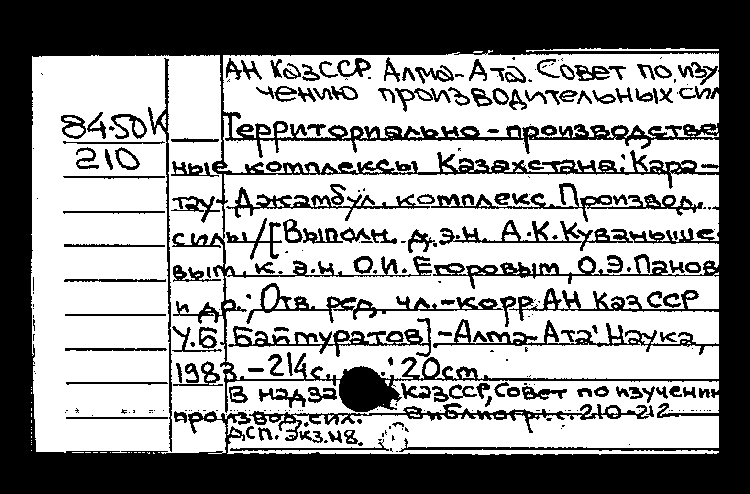 АН КазССР. Алма-Ата. Совет по изу-
чению производительных сил
84-50К
210
Территориально-производствен
ные комплексы Казахстана: Кара-
тау-Джамбул. комплекс. Производ.
силы / [Выполн. д.э.н. А.К. Куваныше
вым, к.э.н. О.И. Егоровым, О.Э. Панов
и др.; Отв. ред. чл.-корр АН КазССР
У.Б. Баймуратов]. - Алма-Ата: Наука,
1983. - 214 с., ; 20 ст.
В надза КазССР, Совет по изучени
производ. сил. Библиогр.: с. 210-212.
ДСП. Экз. №8.